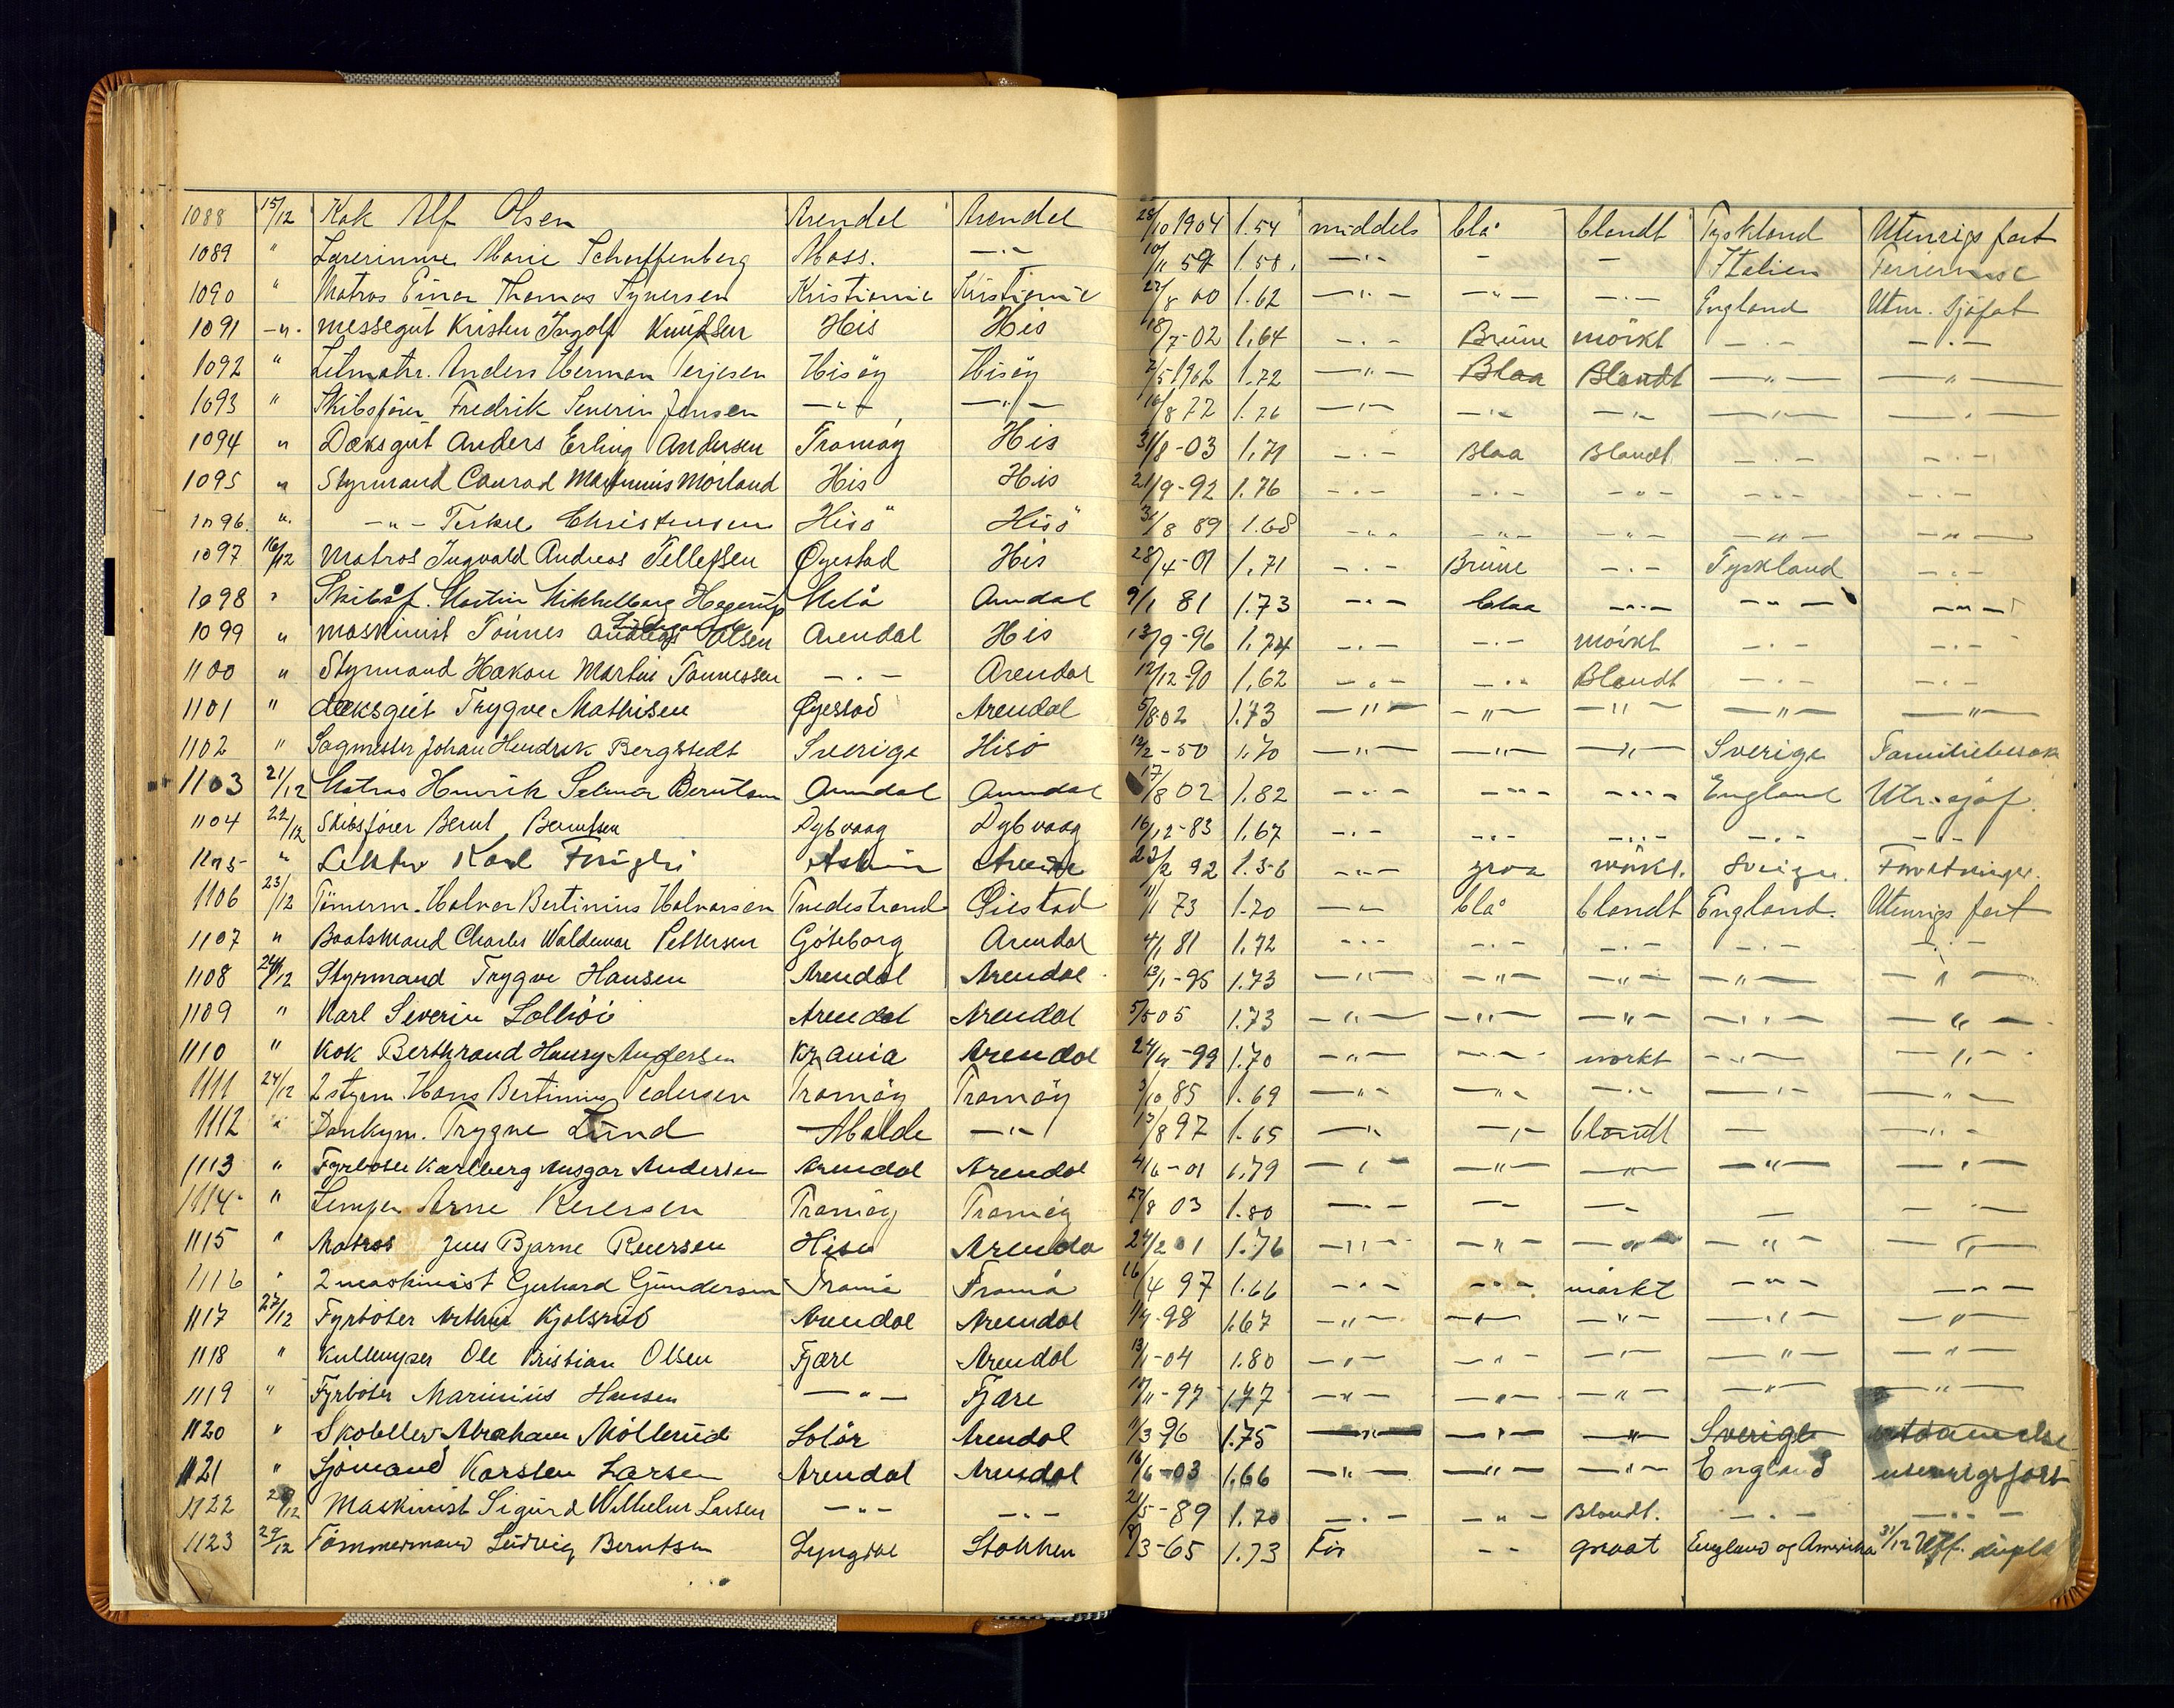 1088 15/12 Kok Alf Olsen Arendal Arendal 28/10 1904 1.54 middels blå blondt Tyskland Utenrigs fart
1089 " Lærerinne Marie Scharffenberg Moss. —"— 10/11 59 1.58. —"— - - Italien Feriereise
1090 " Matros Einar Thomas Syversen Kristiania Kristiania 27/8 00 1.62 —"— —"— —"— England Utnr. Sjöfat
1091 -"- messegut Kristen Ingolf Knutsen His His 18/7-02 1.64 —"— Brune mörkt —"— —"—
1092 " Letmatr. Anders Herman Terjesen Hisöy Hisöy 2/5 1902 1.72 —"— Blaa Blondt —"— —"—
1093 " Skibsfører Fredrik Severin Jensen —"— —"— 10/8 72 1.76 —"— —"— —"— —"— —"—
1094 " Dæksgut Anders Erling Andersen Tromöy His 31/8-03 1.71 —"— Blaa Blondt —"— —"—
1095 " Styrmand Conrad Martinius Mörland His His 21/9-92 1.76 —"— —"— —"— —"— —"—
1096. " —"— Terkel Christensen Hisö Hisö 31/8 89 1.68 —"— —"— —"— —"— —"—
1097 16/12 Matros Ingvald Andreas Tellefsen Øyestad His 28/4-01 1.71 —"— Brune —"— Tyskland —"—
1098 " Skibsf. Martin Mikkelborg Hagerup Melö Arendal 9/1 81 1.73 —"— blaa —"— —"— —"—
1099 " maskinist Tönnes Andreas Olsen Arendal His 13/9-96 1.74 —"— —"— mörkt —"— —"—
1100 " Styrmand Hakon Martin Tönnessen —"— Arendal 12/12-90 1.62 —"— —"— Blondt —"— —"—
1101 " dæksgut Trygve Mathisen Øyestad Arendal 5/8 02 1.73 —"— —"— —"— —"— —"—
1102 " Sagmester Johan Hendrik Bergstedt Sverige Hisö 12/2-50 1.70 —"— —"— —"— Sverige Familiebesøk
1103 21/12 Matros Henrik Selmer Berntsen Arendal Arendal 17/8 02 1.82 —"— —"— —"— England Utr. sjöf.
1104 22/12 Skibsfører Bernt Berntsen Dybvaag Dybvaag 16/12-83 1.67 —"— —"— —"— —"— —"—
1105 " Lektor Karl 23/2 92 1.56 —"— graa mörkt.
1106 23/12 Tömerm. Halvor Bertinius Halvorsen Tvedestrand Öiestad 11/1 73 1.70 —"— blå blondt England. Utenrigs fart
1107 " Baatsmand Charles Waldemar Pettersen Göteborg Arendal 4/1 81 1.72 —"— —"— —"— —"— —"—
1108 24/12 Styrmand Trygve Hansen Arendal Arendal 13/1-95 1.73 —"— —"— —"— —"— —"—
1109 " Karl Severin Arendal Arendal 5/5 05 1.73 —"— —"— —"— —"— —"—
1110 " Kok Berthrand Henry Andersen Kr.ania Arendal 24/4-99 1.70 —"— —"— mörkt —"— —"—
1111 24/12 2 styrm. Hans Bertinius Pedersen Tromöy Tromöy 3/10 85 1.69 —"— —"— —"— —"— —"—
1112 " Donkym. Trygve Lund Molde —"— 13/8 97 1.65 —"— —"— blondt — —"—
1113 " Fyrböter Karlberg Ansgar Andersen Arendal Arendal 4/6-01 1.79 —"— —"— —"— —"— —"—
1114 " Lemper Arne Reiersen Tromöy Tromöy 27/8 03 1.80 —"— —"— — — —"—
1115 " Matros Jens Bjarne Reiersen Hisö Arendal 24/2 01 1.76 —"— —"— —"— —"— —"—
1116 " 2 maskinist Gerhard Gundersen Tromö Tromö 16/4 97 1.66 —"— —"— mörkt —"— —"—
1117 27/12 Fyrböter Arthur Kjolsrud Arendal Arendal 1/9-98 1.67 —"— —"— —"— —"— —"—
1118 " Kullemper Ole Kristian Olsen Fjære Arendal 13/1-04 1.80 —"— —"— —"— —"— —"—
1119 " Fyrböter Marinius Hansen —"— Fjære 17/11-97 1.77 —"— —"— —"— —"— —"—
1120 " Abraham Möllerud Solör Arendal 1/3-96 1.75 —"— —"— —"— Sverige utdannelse
1121 " Sjömand Karsten Larsen Arendal Arendal 16/6-03 1.66 —"— —"— —"— England utenrigsfart
1122 28/12 Maskinist Sigurd Wilhelm Larsen —"— —"— 21/5-89 1.70 —"— —"— Blondt. —"— —"—
1123 29/12 Tömmermand Ludvig Berntsen Lyngdal Stokken 8/3-65 1.73 För -- graat England og Amerika 31/12 Utf. dupl.